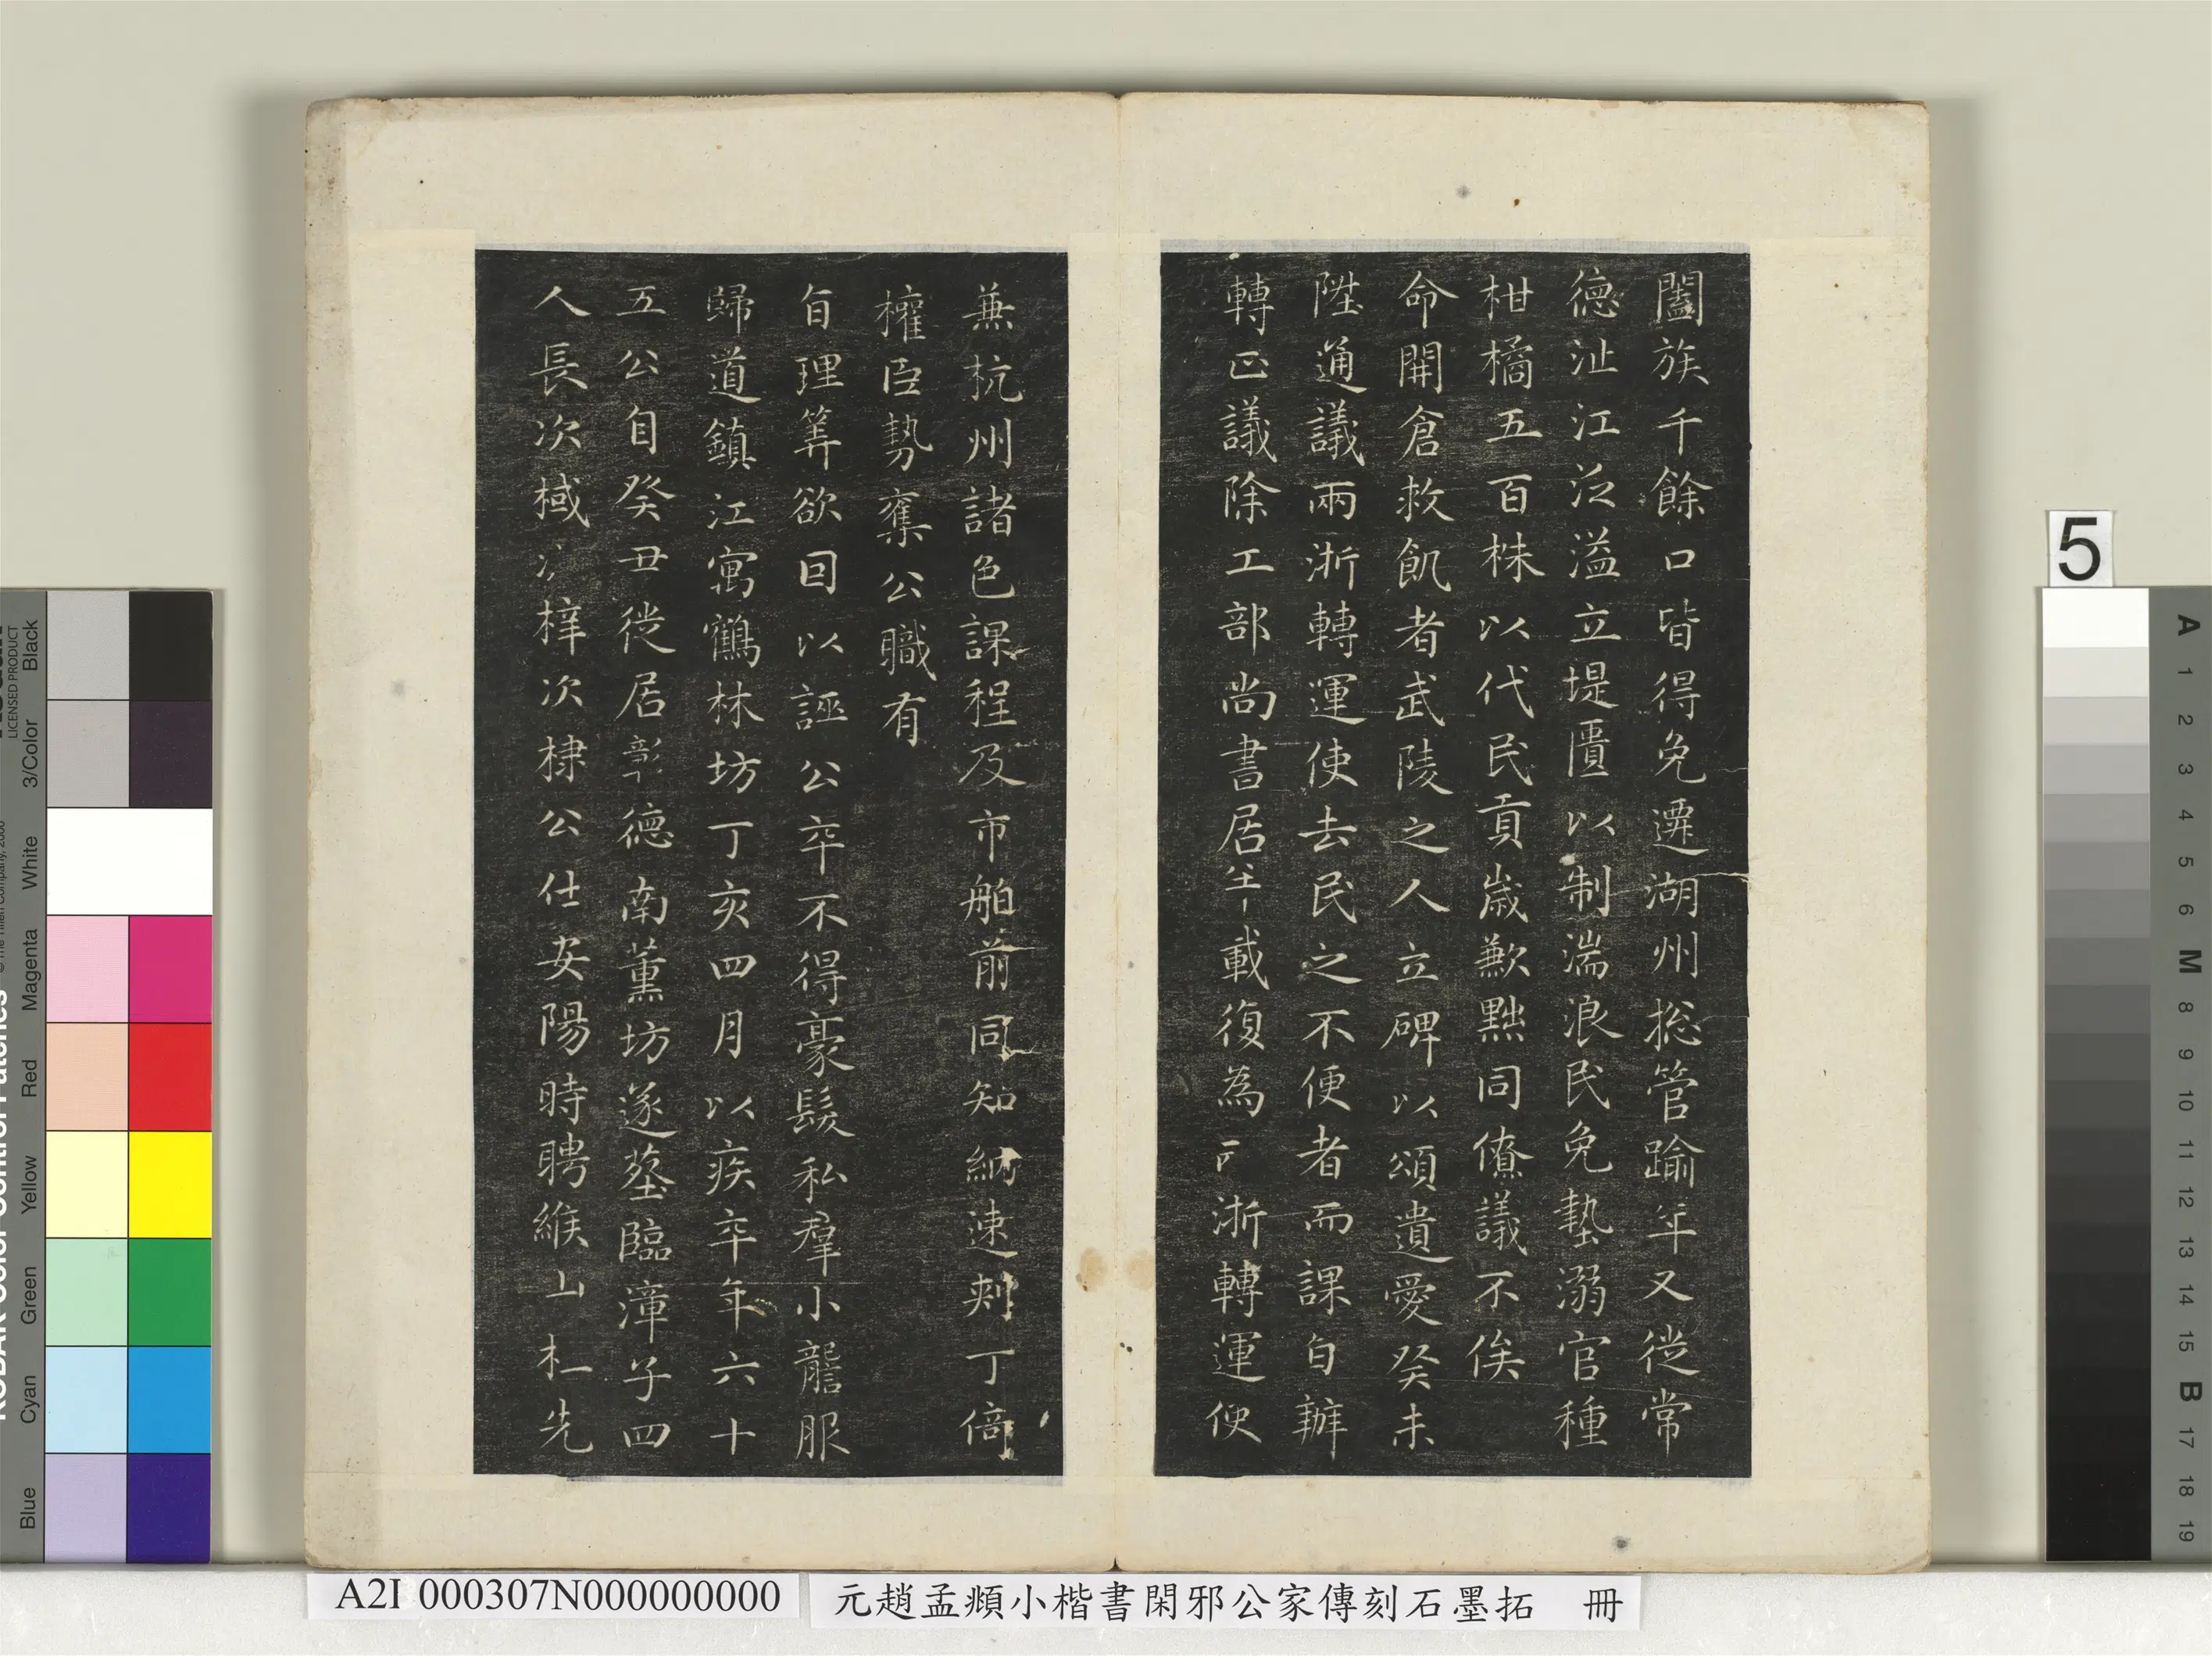 闔族千餘口皆得免遷湖州捴管踰年又從常
德沚江泛溢立堤匽以制湍浪民免墊溺官種
柑橘五百株以代民貢歲歉黜同僚議不俟
命開倉救飢者武陵之人立碑以頌遺愛癸未
陞通議兩浙轉運使去民之不便者而課自辦
轉正議除工部尚書居半載復為 浙轉運使
兼杭州諸色課程及市舶前同知納速剌丁倚
權臣勢奪公職有
旨理筭欲因以誣公卒不得豪髮私羣小讋服
歸道鎮江寓鶴林坊丁亥四月以疾卒年六十
五公自癸丑徙居彰德南薰坊遂塟臨漳子四
人長次棫次梓次棣公仕安陽時聘緱山杜先
元趙孟頫小楷書閑邪公家傳刻石墨拓 冊
A2I 000307N000000000
5
A 1 2 3 4 5 6 M 8 9 10 11 12 13 14 15 B 17 18 19
Blue Cyan Green Yellow Red Magenta White 3/Color Black
LICENSED PRODUCT